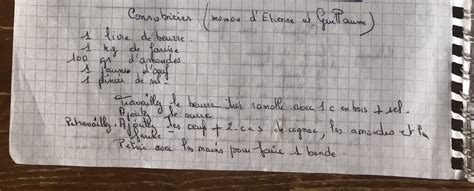 (maman d'Etienne et Guillaume)
1 livre de beurre
1 kg de farine
100 gr d'amandes
1 jaune d'œuf
1 pincée de sel
Travailler le beurre très ramolli avec 1 c en bois + sel.
Ajouter le sucre
Retravailler, Ajouter les œufs + 2 c à s de cognac, les amandes et la
farine
Pétrir avec les mains pour faire 1 boule.